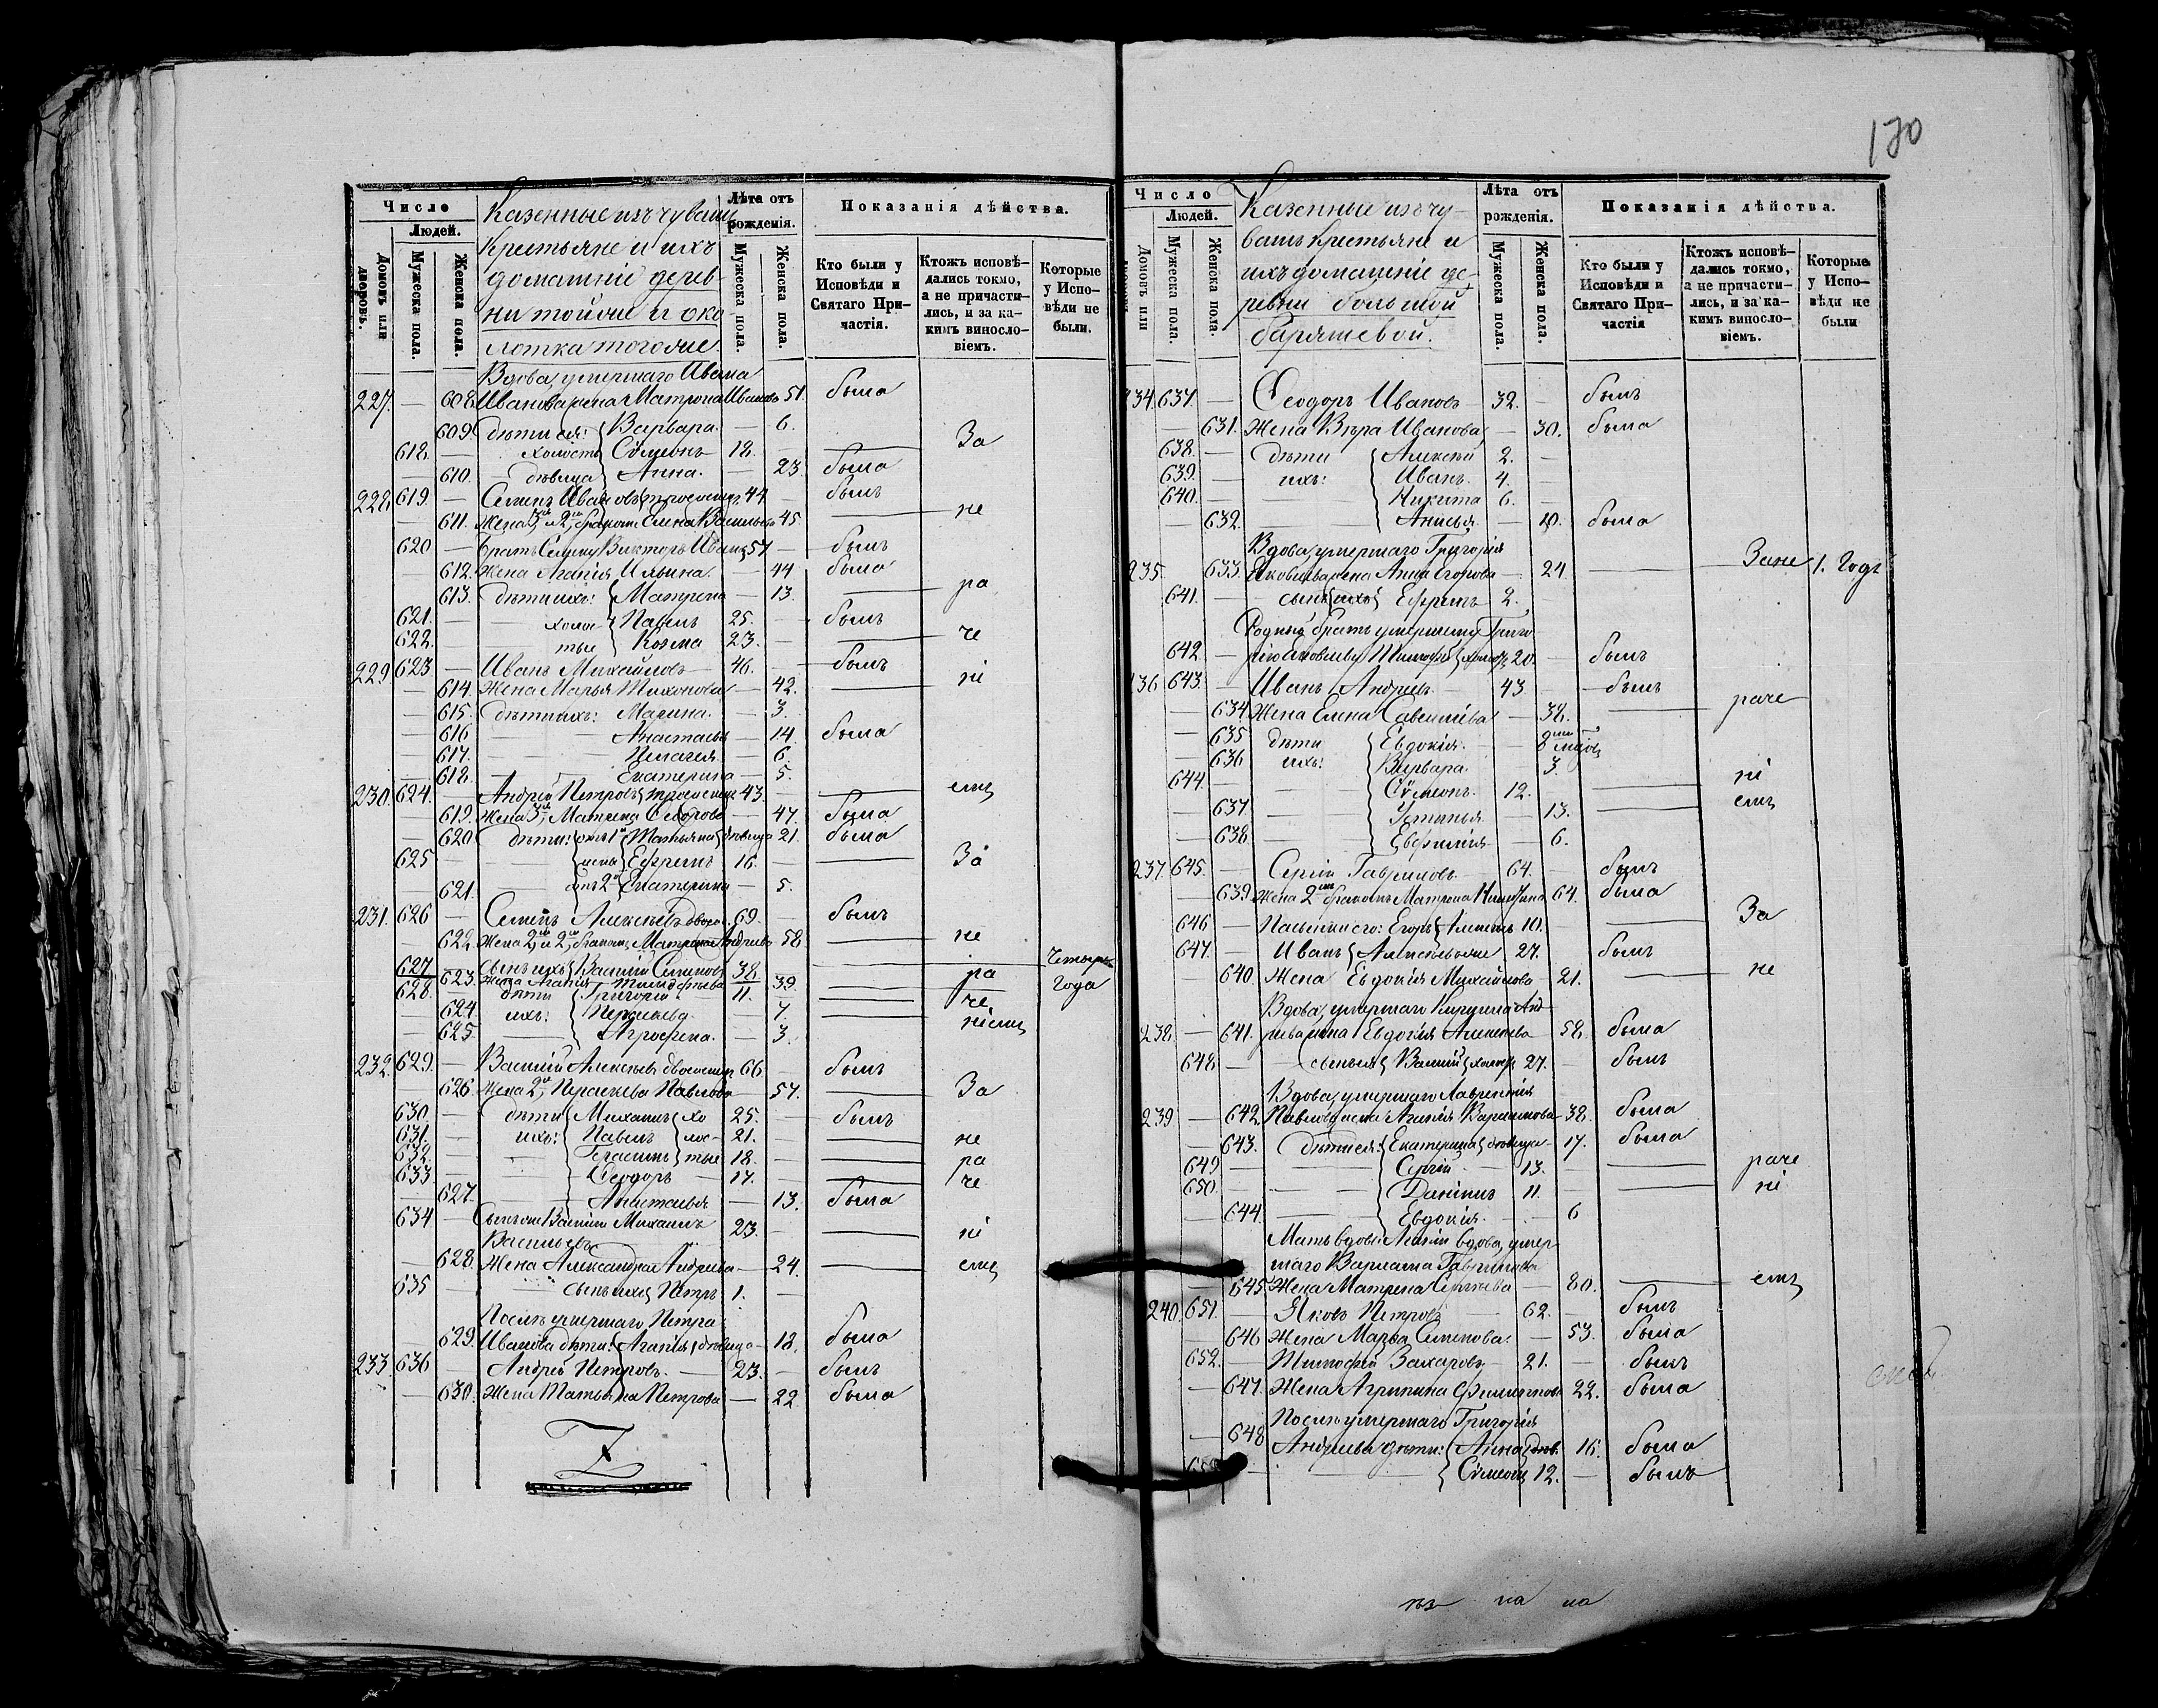 170
Число
Людей.
Домовъ или дворовъ.
Мужеска пола.
Женска пола.
Казенные изъ чувашъ
крестьяне и ихъ
домашніе дерев-
ни тойже и око
лотка тогоже.
Лѣта отъ рожденія.
Мужеска пола.
Женска пола.
Показанія дѣйства.
Кто были у Исповѣди и Святаго Причастія.
Ктожъ исповѣдались токмо, а не причастились, и за какимъ винословіемъ.
Которые у Исповѣди не были.
Вдова, умершаго Ивана
227. — 608. Иванова жена Матрона Иванова 51. была
609 дѣти ея: Варвара. — 6.
618. — холостъ Сѵмеонъ 18. — За
— 610. — дѣвица Анна. — 23. была
228. 619. — Семенъ Ивановъ троеженецъ 44 — былъ
— 611. Жена 3, и 2, бракомъ Елена Васильева 45. не
620 — братъ Семену Викторъ Ивановъ 57 — былъ
— 612. Жена Агапія Ильина. — 44 была
613. дѣти ихъ: Матрена — 13. ра
621. — холос Павелъ 25. — былъ
622. — тые Козма 23. — че
229. 623 — Иванъ Михайловъ — 46. — былъ
— 614. Жена Марья Тихонова — 42. ні
— 615. дѣти ихъ: Марина. — 3.
— 616 — Анастасья — 14. была
— 617. — Пелагея — 6.
— 618. — Екатерина — 5.
230. 624. — Андрей Петровъ троеженецъ 43. — емъ
619. Жена 3, Матрена Ѳедорова — 47. была
— 620 дѣти: отъ 1й Татьяна дѣвица 21. была
625 — жены Ефремъ 16. — За
— 621. — отъ 2й Екатерина — 5.
231. 626 — Семенъ Алексѣевъ двоежен. 69. — былъ
— 622. Жена 2, и 2, бракомъ Матрена Андреева 58 не
627 — сынъ ихъ Василій Семеновъ 38. ра Четыре
623. Жена Агапія Тимофеева 39. года
628. — дѣти Григорій 11. че
— 624. ихъ: Параскева — 7. ніемъ
— 625 — Агрофена. — 3.
232. 629. — Василій Алексѣевъ двоеженецъ 66 — былъ
626. Жена 2, Параскева Павлова — 57. За
630 — дѣти Михаилъ хо 25. — былъ
631. — ихъ: Павелъ лос- 21. — не
632. — Герасимъ тые 18. — ра
633 — Ѳеодоръ — 17. — че
— 627. — Анастасья — 13. была
634 — Сынъ же Василію Михаилъ 23. — ні
Васильевъ
— 628. Жена Александра Андреева — 24. емъ
635 — сынъ ихъ Петръ 1. —
Послѣ умершаго Петра
— 629. Иванова дѣти: Агапія дѣвица — 18. была
233. 636 — Андрей Петровъ. — 23. — былъ
— 630. Жена Татьяна Петрова — 22. была
Число
Людей.
Домовъ или
Мужеска пола.
Женска пола.
Казенные изъ чу-
вашъ крестьяне и
ихъ домашніе де-
ревни большой
барышевой.
Лѣта отъ рожденія.
Мужеска пола.
Женска пола.
Показанія дѣйства.
Кто были у Исповѣди и Святаго Причастія
Ктожъ исповѣдались токмо, а не причастились, и за какимъ винословіемъ.
Которые у Исповѣди не были
234. 637. — Ѳеодоръ Ивановъ 32. — былъ
— 631. Жена Вѣра Иванова — 30. была
638. — дѣти Алексѣй 2. —
639. — ихъ: Иванъ. 4. —
640. — Никита 6. —
— 632. — Анисья. — 10. была
Вдова, умершаго Григорія
235. 633. Яковлева жена Анна Егорова — 24 Зане 1. годъ
641. — сынъ ихъ Ефремъ 2. —
Родный братъ умершему Григо
642. — рію Яковлеву Тимофей холостъ 20. — былъ
236 643. — Иванъ Андреевъ — 43 — былъ
— 634 Жена Елена Савельева — 38. раче
— 635 дѣти Евдокія. — 8 мѣсяц
— 636 ихъ: Варвара. — 3.
644. — Сѵмеонъ. 12. ні
— 637. — Устинья — 13. емъ
— 638. — Евфимія — 6.
237. 645. — Сергій Гавриловъ. — 64. — былъ
— 639. Жена 2, бракомъ Матрона Никитина 64. была
646 — Пасынки его: Егоръ Алексѣевъ 10. За
647. — Иванъ Алексѣевъ же 27. былъ
— 640. Жена Евдокія Михайлова 21. не
Вдова, умершаго Кирилла Анд-
238. — 641. реева жена Евдокія Алексѣева 58. была
648 — сынъ ея Василій холостъ 27. — былъ
Вдова, умершаго Лаврентія
239 — 642. Павлова жена Агапія Варламова — 38. была
— 643. дѣти ея: Екатерина дѣвица — 17. была
649 — Сергій — 13. — раче
650. — Даніилъ 11. — ні
— 644. — Евдокія. — 6
Мать вдовы Агапіи вдова, умер
шаго Варлама Гаврилова
645 Жена Матрена Сергѣева — 80. емъ
240. 651. — Яковъ Петровъ — 62. — былъ
— 646 Жена Марья Семенова. — 53. была
652. — Тимофей Захаровъ — 21. — былъ
— 647. Жена Агрипина Филиппова 22. была
Послѣ умершаго Григорія
— 648 Андреева дѣти: Анна дѣв. 16. была
— Сѵмеонъ 12. — былъ